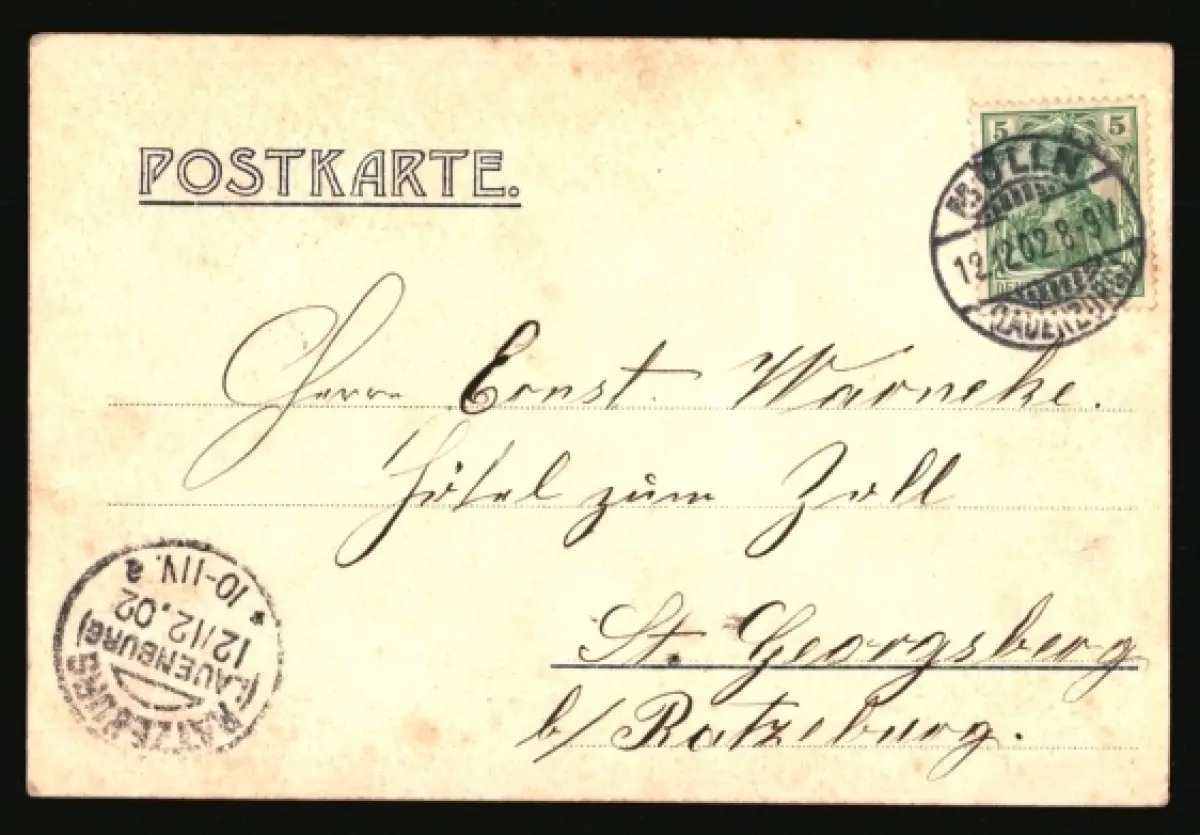 POSTKARTE.
5 5
MÖLLN
12.12.02 8-9V.
(LAUENBURG)
Herrn Ernst Warneke.
Hôtel zum Zoll
St. Georgsberg
b/ Ratzeburg.
RATZEBURG
(LAUENBURG)
12/12.02
* 10-11V. a